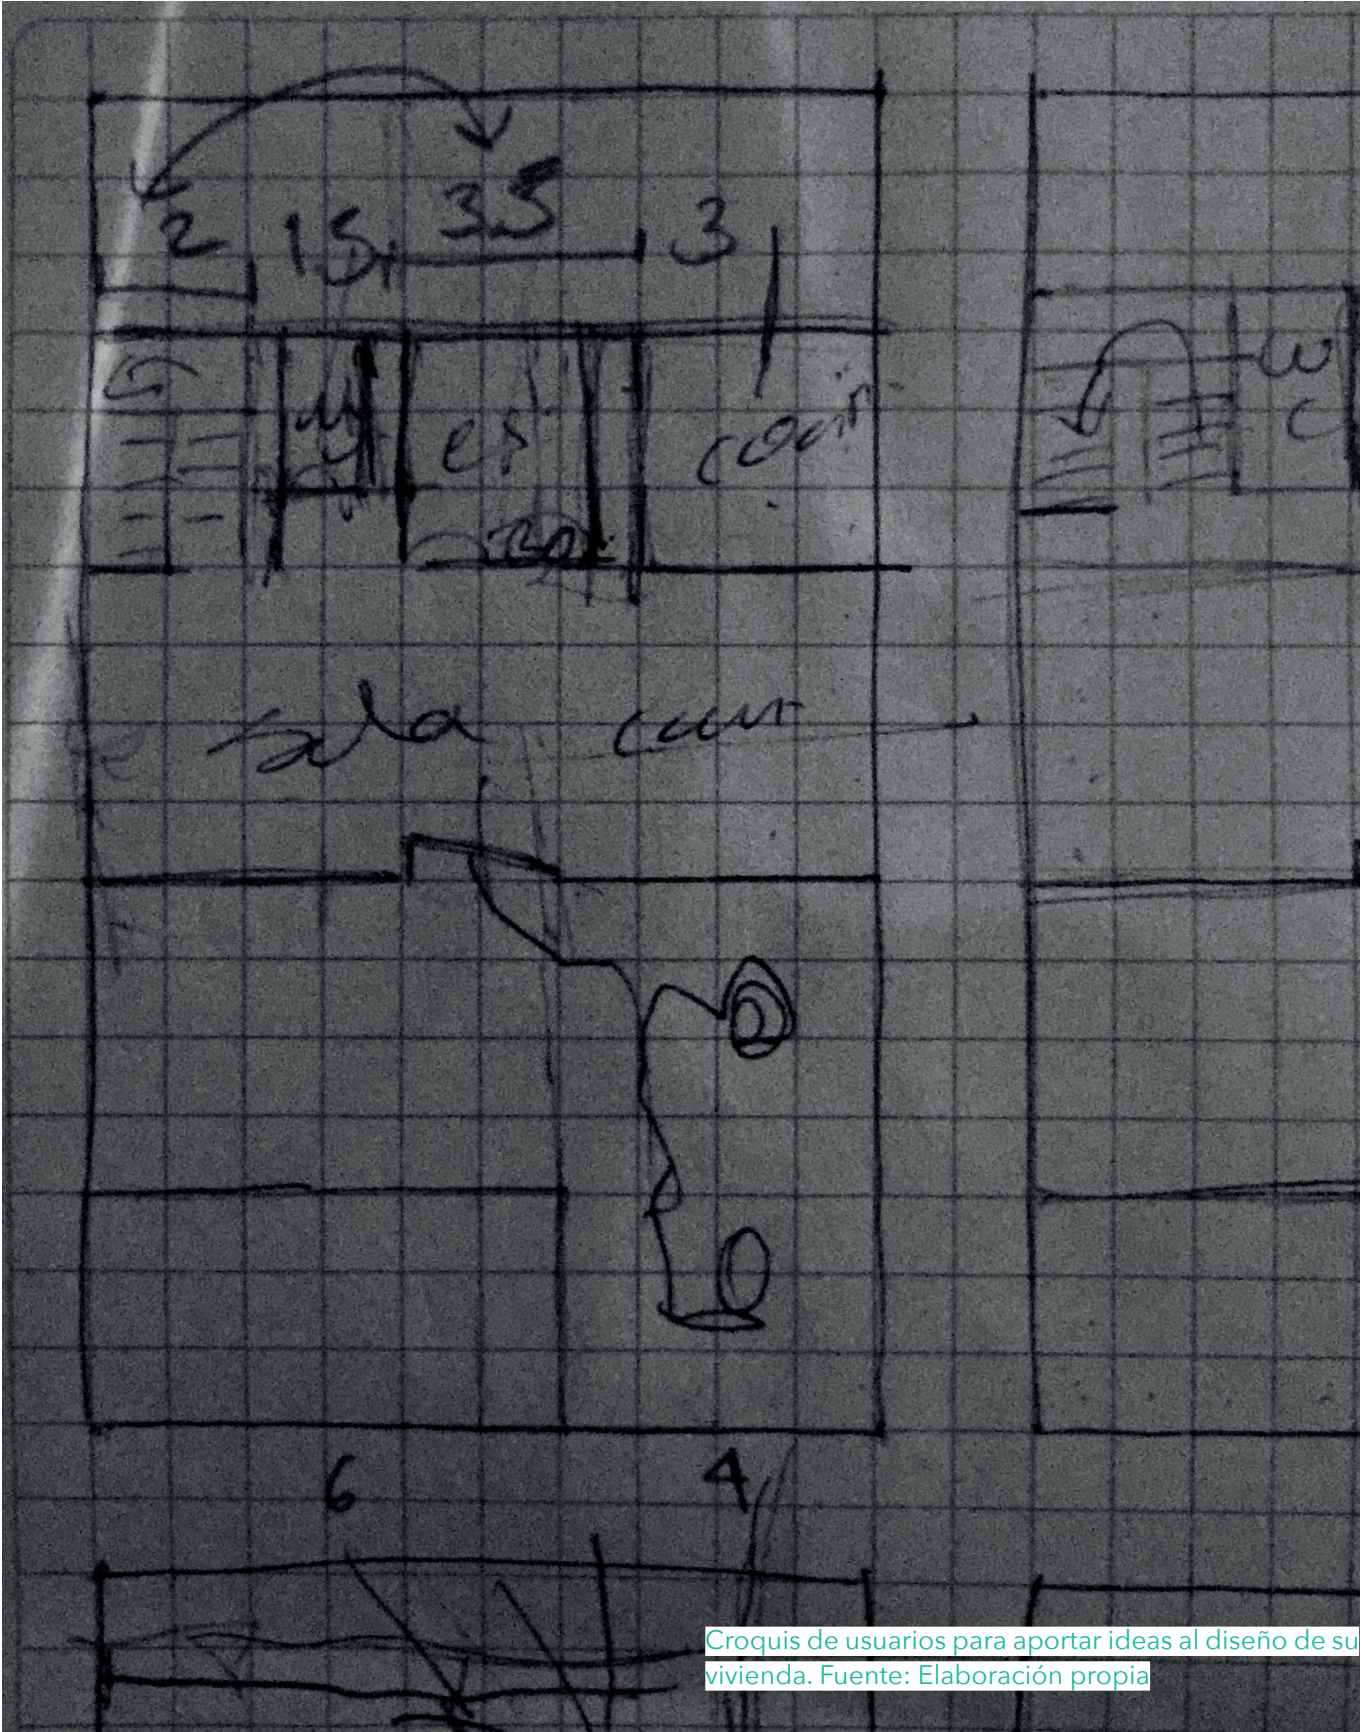 2 1.5 3.5 3
W
C
sala
6 4
Croquis de usuarios para aportar ideas al diseño de su
vivienda. Fuente: Elaboración propia